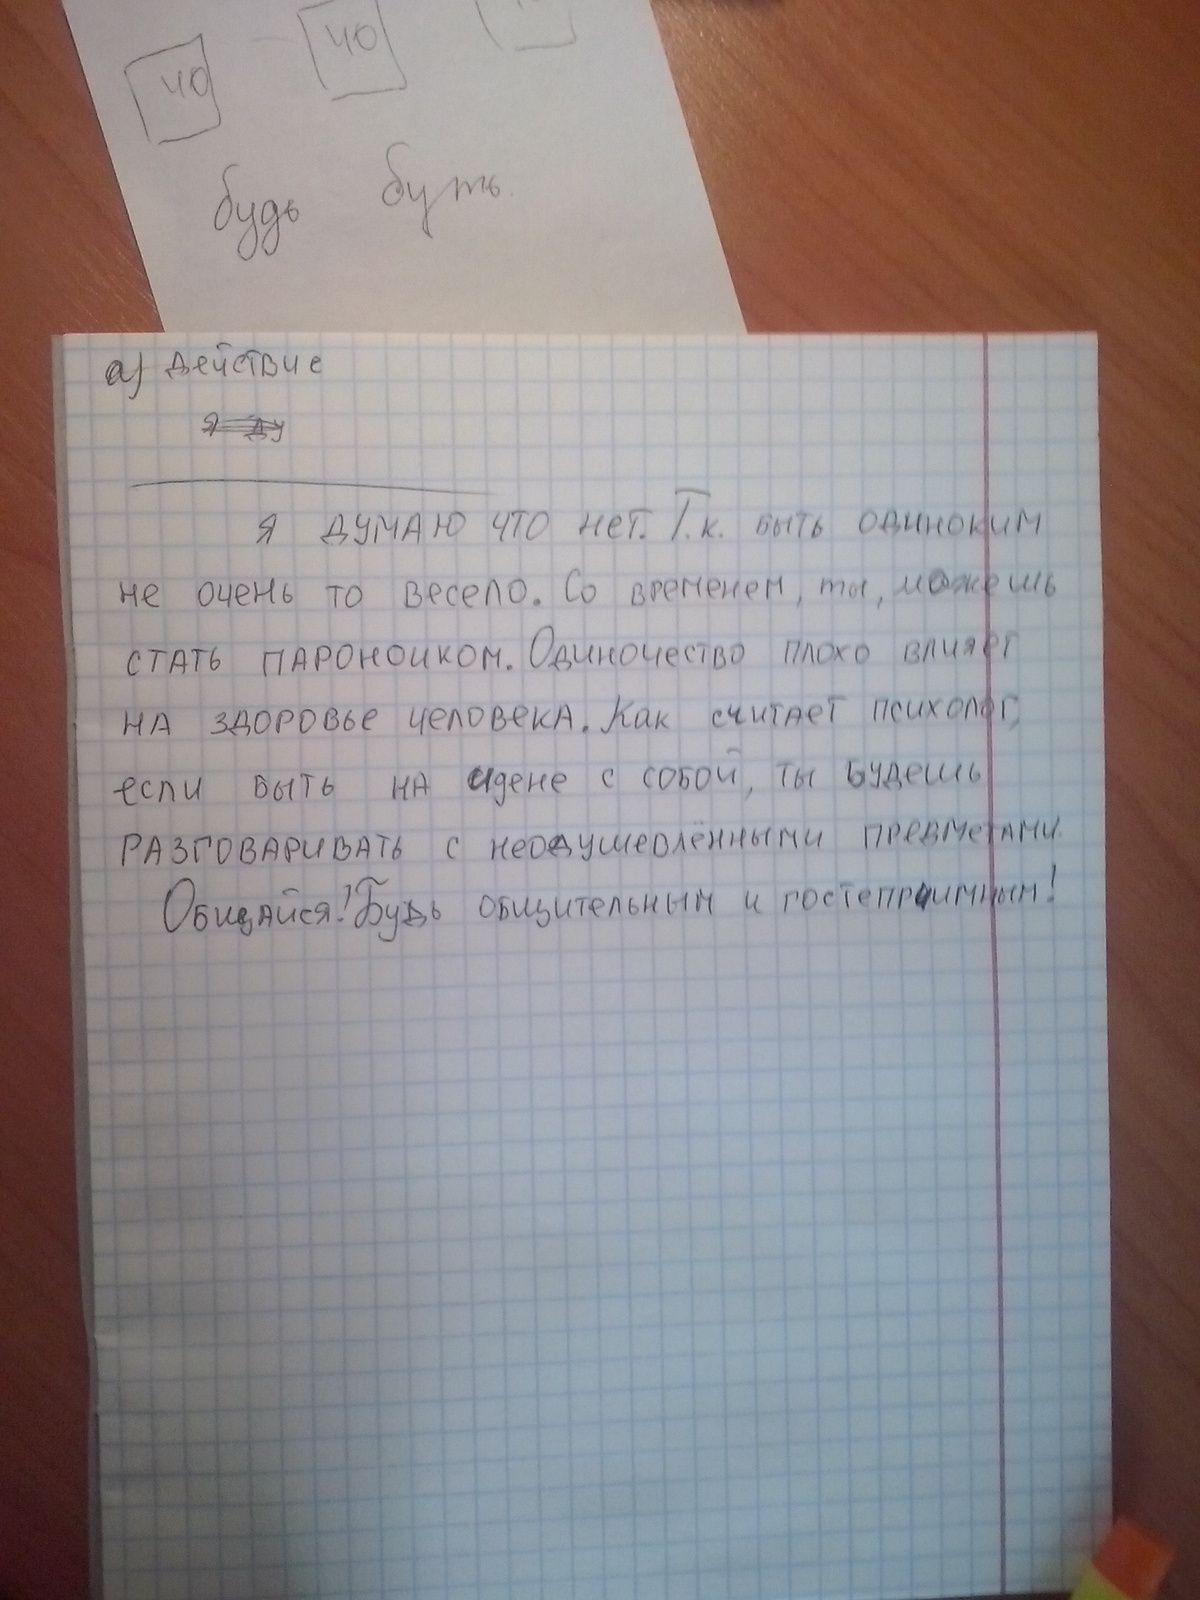 40 40
будь буть.
а) Действие
я ду
Я думаю что нет. Т.к. быть одиноким
не очень то весело. Со временем, ты, можешь
стать пароноиком. Одиночество плохо влияет
на здоровье человека. Как считает психолог,
если быть на идене с собой, ты будешь
разговаривать с неодушевлёнными предметами.
Общайся! Будь общительным и гостеприимным!